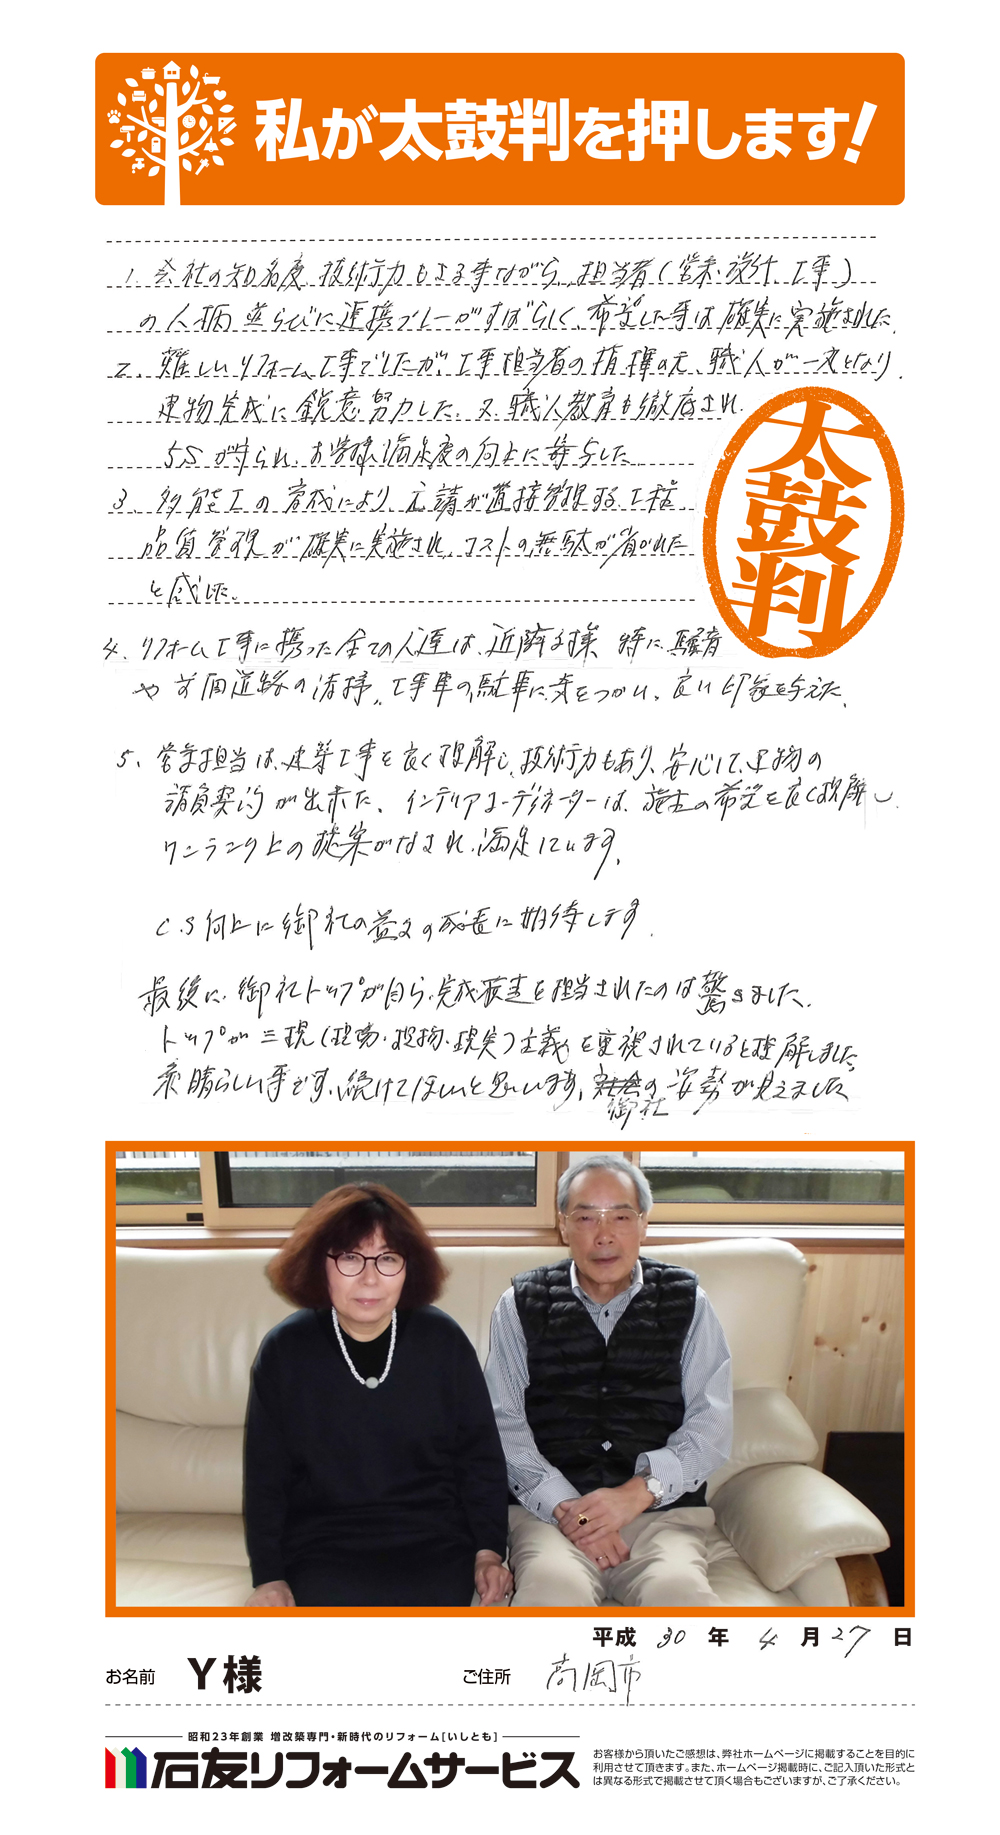 私が太鼓判を押します!
1. 会社の知名度、技術力もさる事ながら、担当者(営業、設計、工事)
の人柄並らびに連携プレーがすばらしく、希望した事は確実に実施された。
2. 難しいリフォーム工事でしたが、工事担当者の指揮の元、職人が一丸となり、
建物完成に鋭意努力した。又、職人教育も徹底され、
5Sが守られ、お客様満足度の向上に寄与した。
3. 多能工の育成により、元請が直接管理する、工程
品質管理が確実に実施され、コストの無駄が省かれた
と感じた。
太鼓判
4. リフォーム工事に携った全ての人達は、近隣対策 特に、騒音
や前面道路の清掃、工事車の駐車に気をつかい、良い印象を与えた。
5. 営業担当は、建築工事を良く理解し、技術力もあり、安心して、建物の
請負契約が出来た。インテリアコーディネーターは、施主の希望を良く理解し、
ワンランク上の提案がなされ、満足しています。
C.S向上に御社の益々の成長に期待します。
最後に、御社トップが自ら、完成検査を担当されたのは驚きました。
トップが三現(現場・現物・現実)主義を重視されていると理解しました。
素晴らしい事です、続けてほしいと思います、御社の姿勢が見えました
平成 30 年 4 月 27 日
お名前 Y様 ご住所 高岡市
昭和23年創業 増改築専門・新時代のリフォーム[いしとも]
石友リフォームサービス
お客様から頂いたご感想は、弊社ホームページに掲載することを目的に
利用させて頂きます。また、ホームページ掲載時に、ご記入頂いた形式と
は異なる形式で掲載させて頂く場合もございますが、ご了承ください。